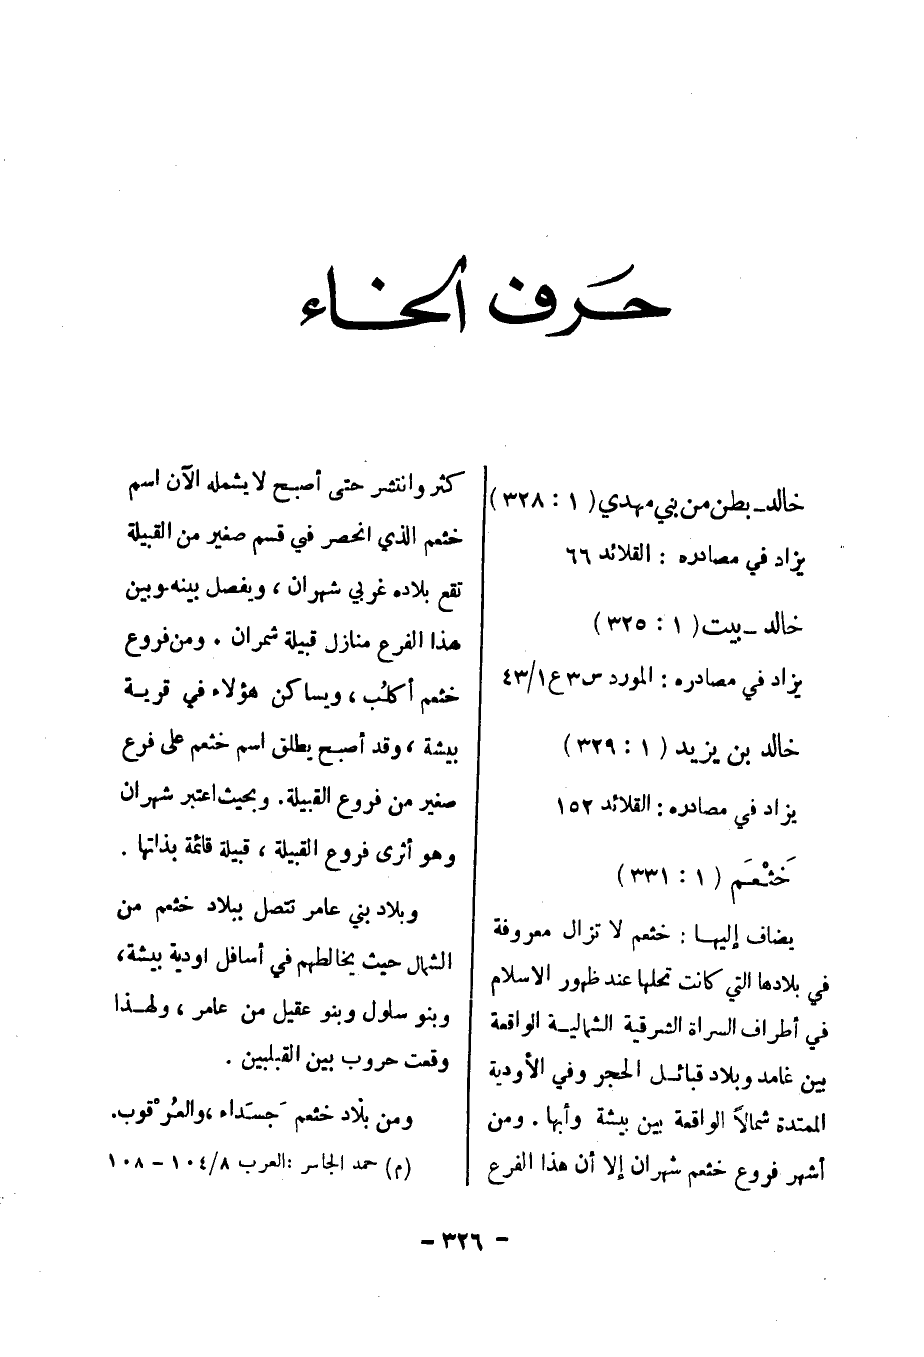 حَرف الخاء
خالد ـ بطن من بني مهدي ( ١ : ٣٢٨ )
يزاد في مصادره : القلائد ٦٦
خالد ـ بيت ( ١ : ٣٢٥ )
يزاد في مصادره : المورد س٣ع٤٣/١
خالد بن يزيد ( ١ : ٣٢٩ )
يزاد في مصادره : القلائد ١٥٢
خَثْعَم ( ١ : ٣٣١ )
يضاف إليها : خثعم لا تزال معروفة
في بلادها التي كانت تحلها عند ظهور الاسلام
في أطراف السراة الشرقية الشمالية الواقعة
بين غامد وبلاد قبائل الحجر وفي الأودية
الممتدة شمالاً الواقعة بين بيشة وأبها . ومن
أشهر فروع خثعم شهران إلا أن هذا الفرع
كثر وانتشر حتى أصبح لا يشمله الآن اسم
خثعم الذي انحصر في قسم صغير من القبيلة
تقع بلاده غربي شهران ، ويفصل بينه وبين
هذا الفرع منازل قبيلة شمران . ومن فروع
خثعم أكلُب ، ويساكن هؤلاء في قرية
بيشة ، وقد أصبح يطلق اسم خثعم على فرع
صغير من فروع القبيلة. وبحيث اعتبر شهران
وهو أثرى فروع القبيلة ، قبيلة قائمة بذاتها .
وبلاد بني عامر تتصل ببلاد خثعم من
الشمال حيث يخالطهم في أسافل اودية بيشة،
وبنو سلول وبنو عقيل من عامر ، ولهذا
وقعت حروب بين القبلبين .
ومن بلاد خثعم جَسَداء ،والعُرْقوب.
(م) حمد الجاسر :العرب ١٠٤/٨ – ١٠٨
- ٣٢٦ -